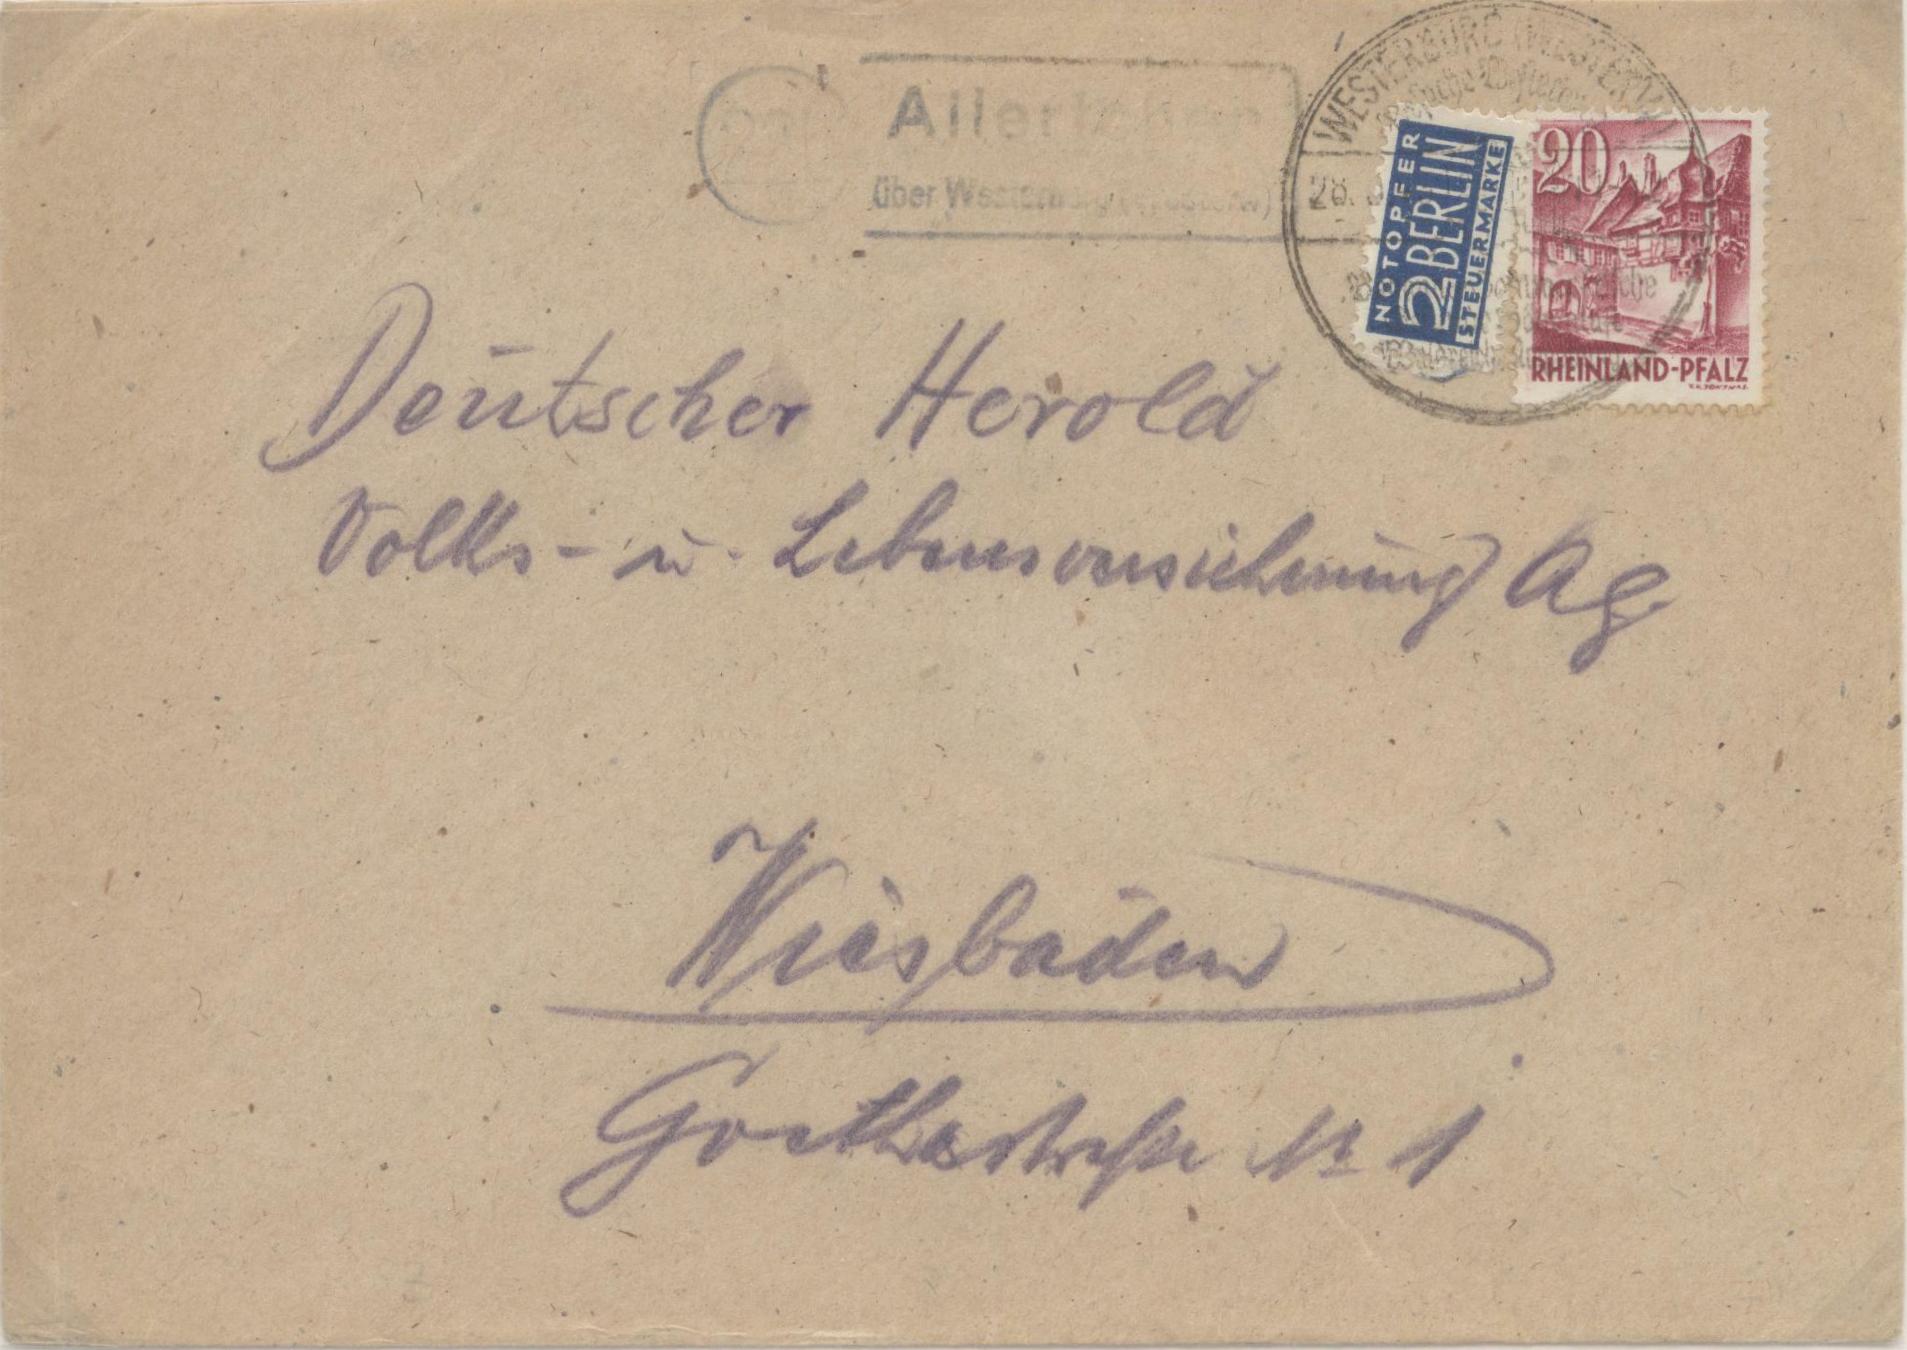 Ailertchen
über Westerburg (Westerw)
WESTERBURG (WESTERW)
28.
NOTOPFER
2 BERLIN
STEUERMARKE
20
RHEINLAND-PFALZ
Deutscher Herold
Volks- u. Lebensversicherung Ag.
Wiesbaden
Goethestraße Nr 1